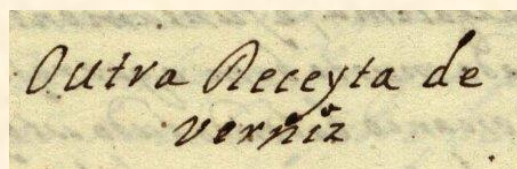 Outra Receyta de
verniz